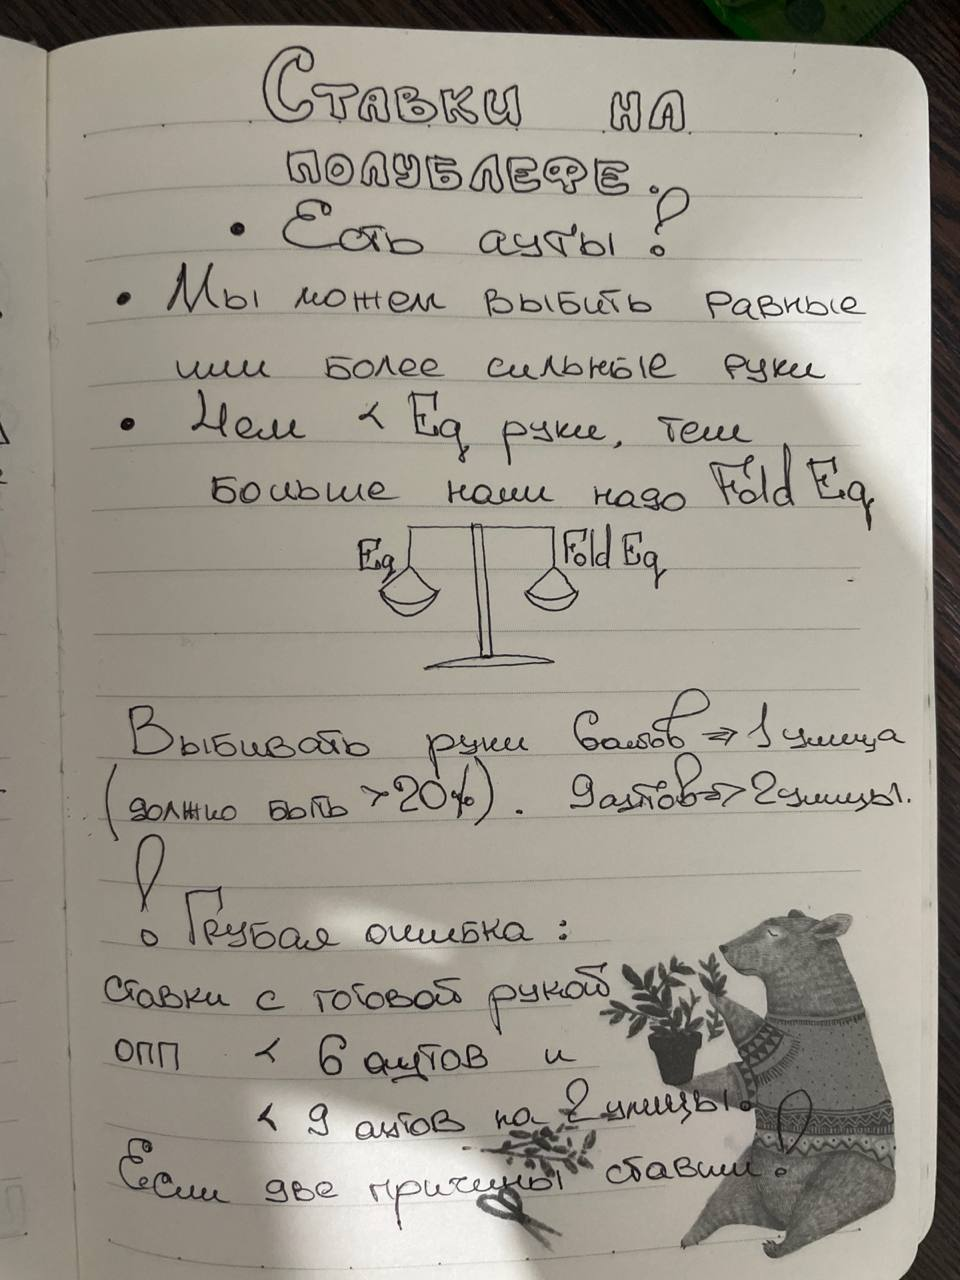 Ставки на
полублефе.
• Есть ауты!
• Мы можем выбить равные
или более сильные руки
• Чем < Eq руки, тем
больше нам надо Fold Eq
Eq Fold Eq
Выбивать руки 6 аутов => 1 улица
(должно быть >20%). 9 аутов => 2 улицы.
! Грубая ошибка:
ставки с готовой рукой
опп < 6 аутов и
< 9 аутов на 2 улицы.
Если две причины ставим!